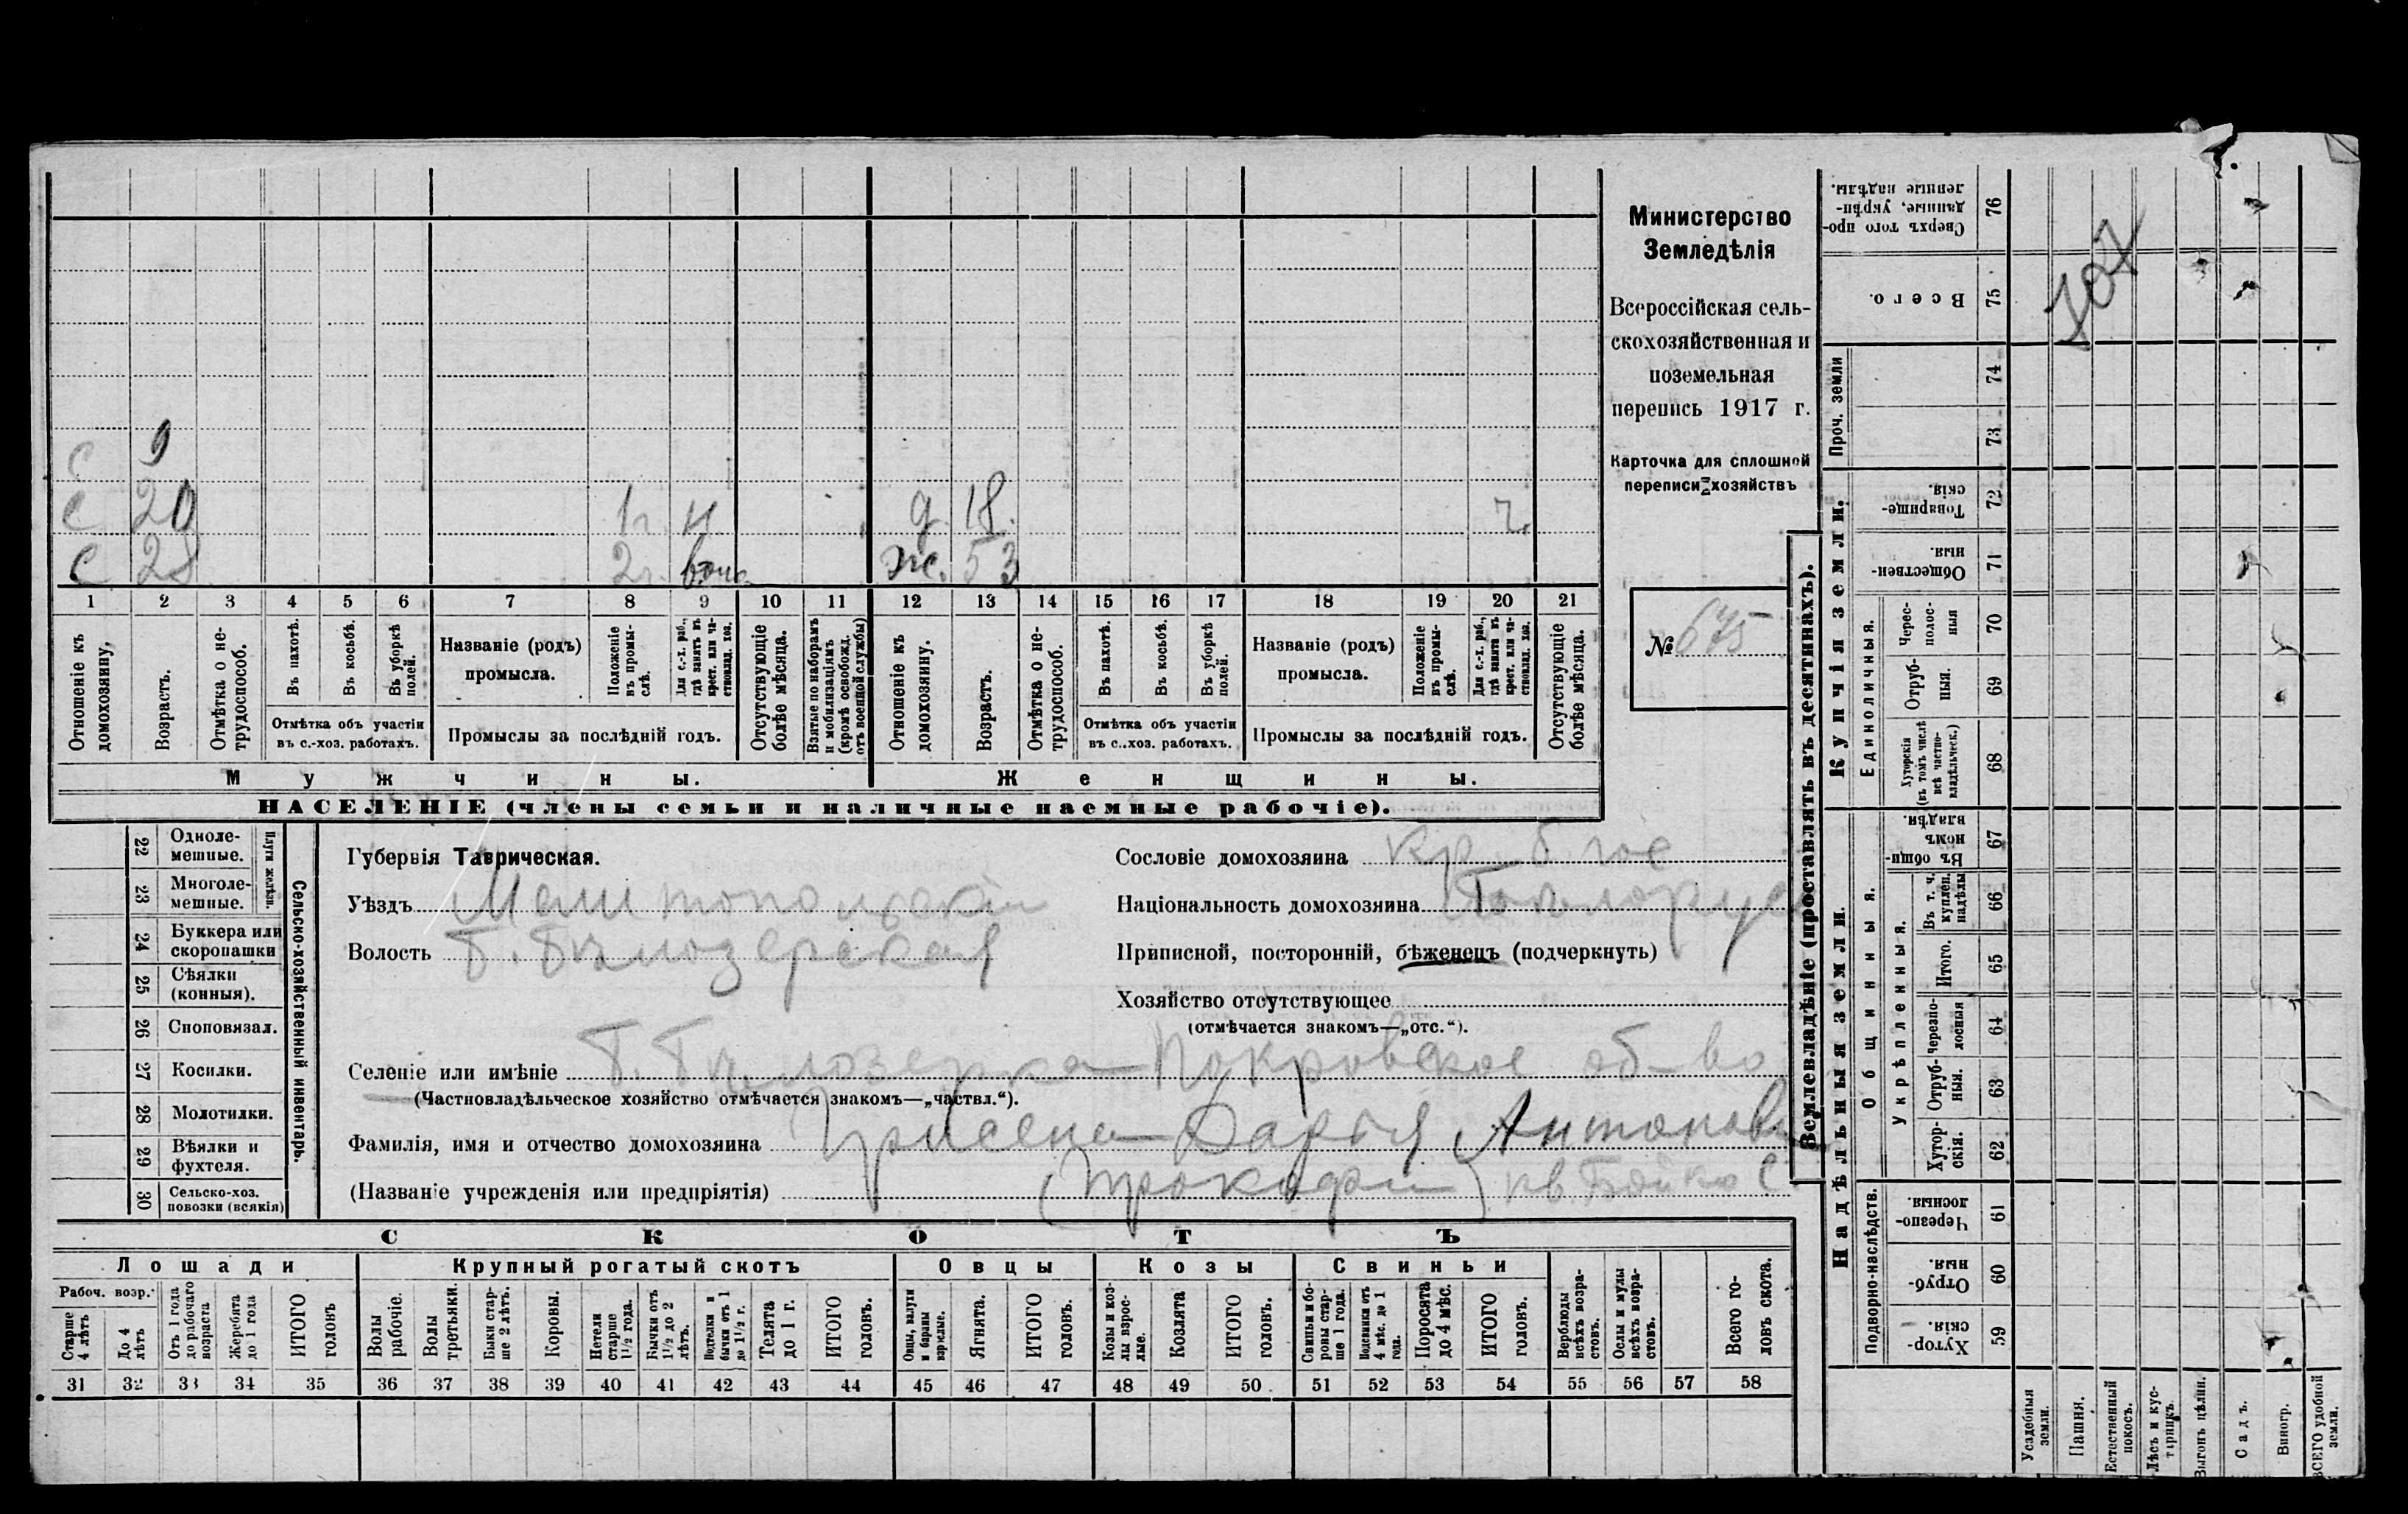 Министерство
Земледѣлія
Всероссійская сель-
скохозяйственная и
поземельная
перепись 1917 г.
Карточка для сплошной
переписи хозяйствъ
№ 675
с 9
с 20 1 г. н д. 18. г.
с 28 2 г. жс. 53
1 2 3 4 5 6 7 8 9 10 11 12 13 14 15 16 17 18 19 20 21
Отношеніе къ домохозяину,
Возрастъ.
Отмѣтка о не-трудоспособ.
Въ пахотѣ.
Въ косьбѣ.
Въ уборкѣ полей.
Отмѣтка объ участіи
въ с.-хоз. работахъ.
Названіе (родъ)
промысла.
Положеніе въ промы-слѣ.
Для с.-х. раб., гдѣ занятъ въ крест. или ча-стновлад. хоз.
Промыслы за послѣдній годъ.
Отсутствующіе болѣе мѣсяца.
Взятые по наборамъ и мобилизаціямъ (кромѣ освобожд. отъ военной службы)
Отношеніе къ домохозяину.
Возрастъ.
Отмѣтка о не-трудоспособ.
Въ пахотѣ.
Въ косьбѣ.
Въ уборкѣ полей.
Отмѣтка объ участіи
въ с..хоз. работахъ.
Названіе (родъ)
промысла.
Положеніе въ промы-слѣ.
Для с.-х. раб., гдѣ занята въ крест. или ча-стновлад. хоз.
Промыслы за послѣдній годъ.
Отсутствующіе болѣе мѣсяца.
Мужчины.
Женщины.
НАСЕЛЕНІЕ (члены семьи и наличные наемные рабочіе).
22 Одноле-мешные.
23 Многоле-мешные.
Плуги желѣзн.
24 Буккера или скоропашки
25 Сѣялки (конныя).
26 Сноповязал.
27 Косилки.
28 Молотилки.
29 Вѣялки и фухтеля.
30 Сельско-хоз. повозки (всякія)
Сельско-хозяйственный инвентарь.
Губернія Таврическая.
Уѣздъ Мелитопольскій
Волость Б. Бѣлозерская
Селеніе или имѣніе Б. Бѣлозерка Покровское об-во
(Частновладѣльческое хозяйство отмѣчается знакомъ—„частвл.“).
Фамилія, имя и отчество домохозяина Дарья Антонов
(Названіе учрежденія или предпріятія) (Прокофій) кв. Бойко С.
Сословіе домохозяина кр.
Національность домохозяина Бѣлорус
Приписной, посторонній, бѣженецъ (подчеркнуть)
Хозяйство отсутствующее
(отмѣчается знакомъ—„отс.“).
СКОТЪ
Лошади
Крупный рогатый скотъ
Овцы
Козы
Свиньи
Рабоч. возр.
Старше 4 лѣтъ
До 4 лѣтъ
Отъ 1 года до рабочаго возраста
Жеребята до 1 года
ИТОГО головъ
Волы рабочіе.
Волы третьяки.
Быки стар-ше 2 лѣтъ.
Коровы.
Нетели старше 1½ года.
Бычки отъ 1½ до 2 лѣтъ.
Подтелки и бычки отъ 1 до 1½ г.
Телята до 1 г.
ИТОГО головъ.
Овцы, валухи и бараны взрослые.
Ягнята.
ИТОГО головъ.
Козы и коз-лы взрос-лые.
Козлята
ИТОГО головъ.
Свиньи и бо-ровы стар-ше 1 года.
Подсвинки отъ 4 мѣс. до 1 года.
Поросята до 4 мѣс.
ИТОГО головъ.
Верблюды всѣхъ возра-стовъ.
Ослы и мулы всѣхъ возра-стовъ.
Всего го-ловъ скота.
31 32 33 34 35 36 37 38 39 40 41 42 43 44 45 46 47 48 49 50 51 52 53 54 55 56 57 58
Землевладѣніе (проставлять въ десятинахъ).
Надѣльныя земли.
Купчія земли.
Проч. земли
Подворно-наслѣдств.
Общинныя.
Укрѣпленныя.
Единоличныя.
59 Хутор-скія.
60 Отруб-ныя.
61 Черезпо-лосныя
62 Хутор-скія.
63 Отруб-ныя.
64 Черезпо-лосныя
65 Итого.
66 Въ т. ч. куплен. надѣлы
67 Въ общи-номъ владѣн.
68 Хуторскія (въ томъ числѣ всѣ частно-владѣльческ.)
69 Отруб-ныя.
70 Черес-полос-ныя
71 Обществен-ныя.
72 Товарище-скія.
73
74
75 Всего.
76 Сверхъ того про-данные, укрѣп-ленные надѣлы.
107
Усадебныя земли.
Пашня.
Естественный покосъ.
Лѣсъ и кус-тарникъ.
Выгонъ цѣлин.
Садъ.
Виногр.
ВСЕГО удобной земли.